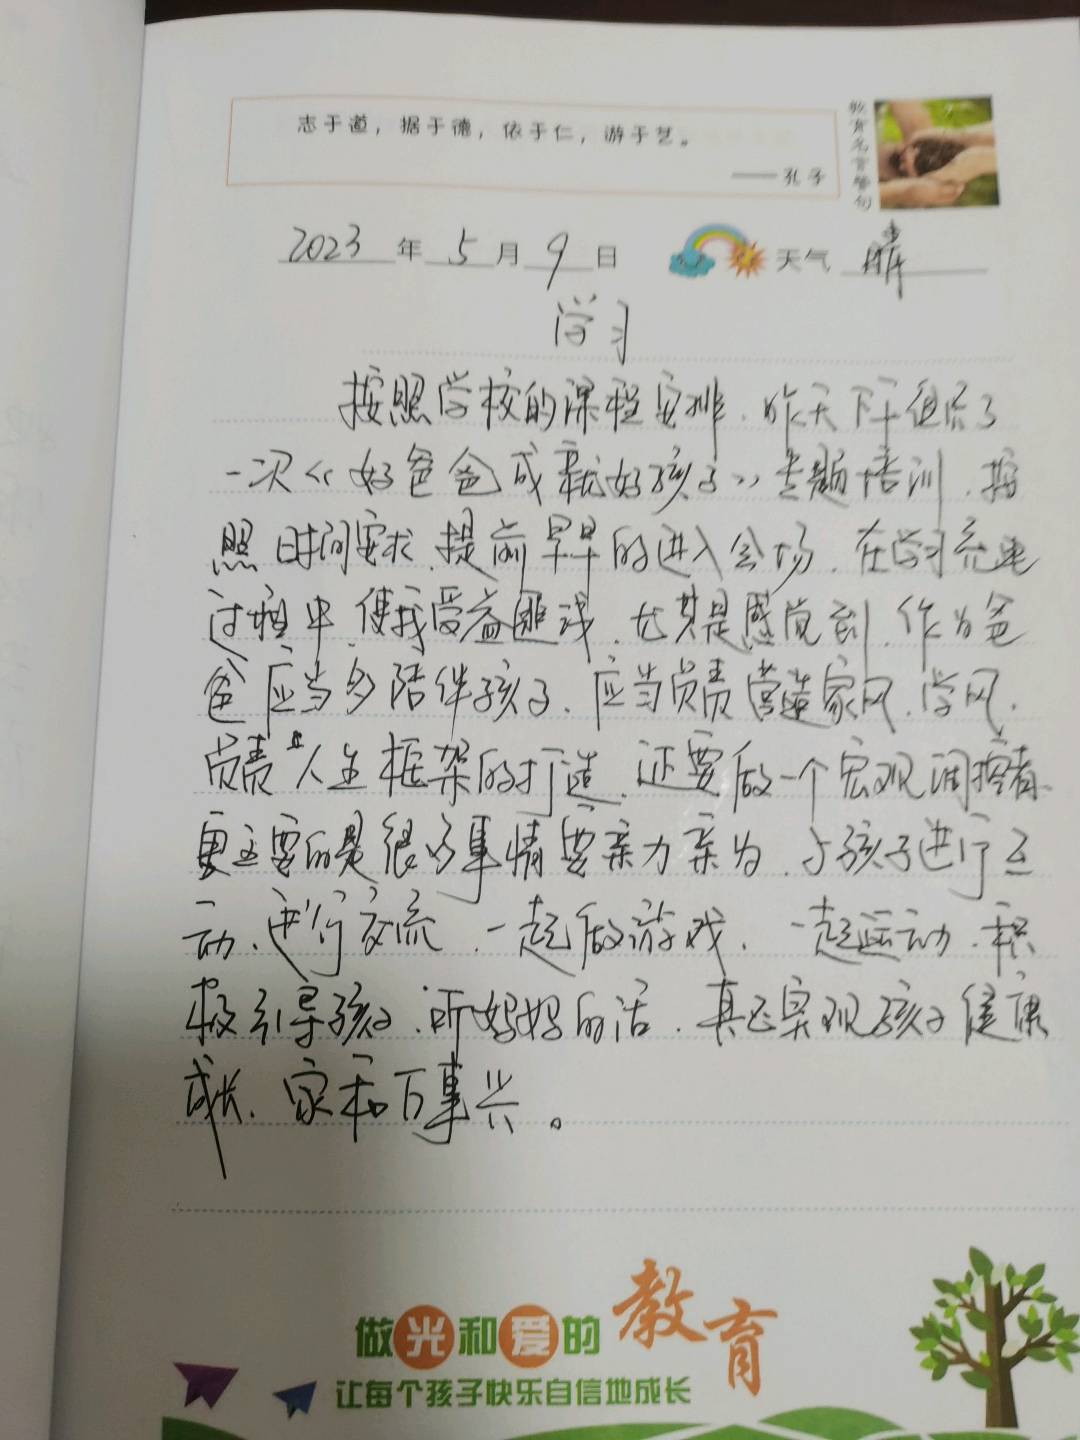 志于道，据于德，依于仁，游于艺。
——孔子
教育名言警句
2023年5月9日 天气 晴
学习
按照学校的课程安排，昨天下午组织了
一次《好爸爸成就好孩子》专题培训，按
照时间要求，提前早早的进入会场，在学习充电
过程中，使我受益匪浅，尤其是感觉到，作为爸
爸应当多陪伴孩子，应当负责营造家风、学风，
负责人生框架的打造，还要做一个宏观调控者，
更主要的是很多事情要亲力亲为，与孩子进行互
动、进行交流，一起做游戏，一起运动，积
极引导孩子，听妈妈的话，真正实现孩子健康
成长、家和万事兴。
做光和爱的教育
让每个孩子快乐自信地成长